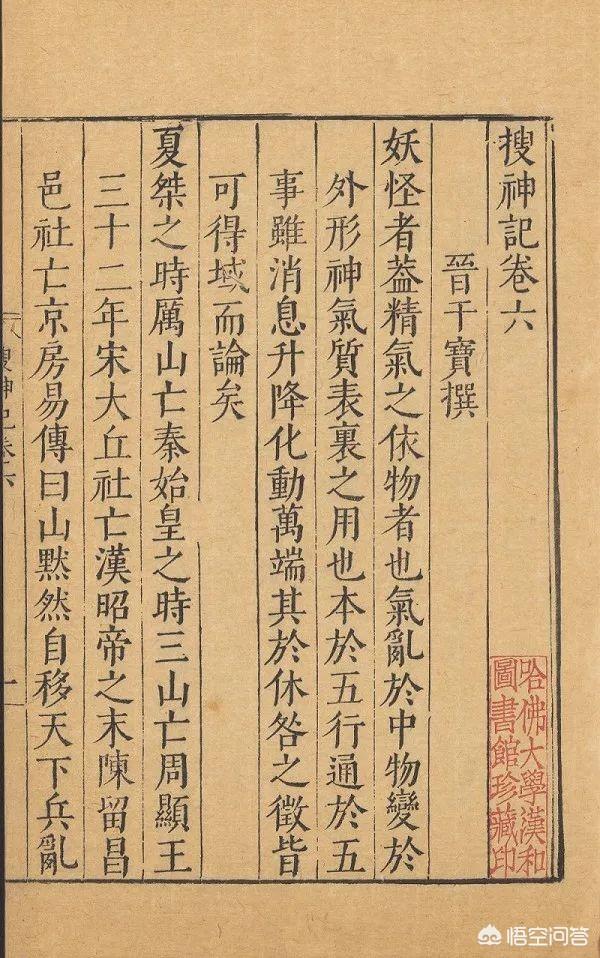 搜神記卷六
晉干寶撰
妖怪者葢精氣之依物者也氣亂於中物變於
外形神氣質表裏之用也本於五行通於五
事雖消息升降化動萬端其於休咎之徵皆
可得域而論矣
夏桀之時厲山亡秦始皇之時三山亡周顯王
三十二年宋大丘社亡漢昭帝之末陳留昌
邑社亡京房易傳曰山黙然自移天下兵亂
搜神記卷六
一
哈佛大學漢和
圖書館珍藏印
悟空问答